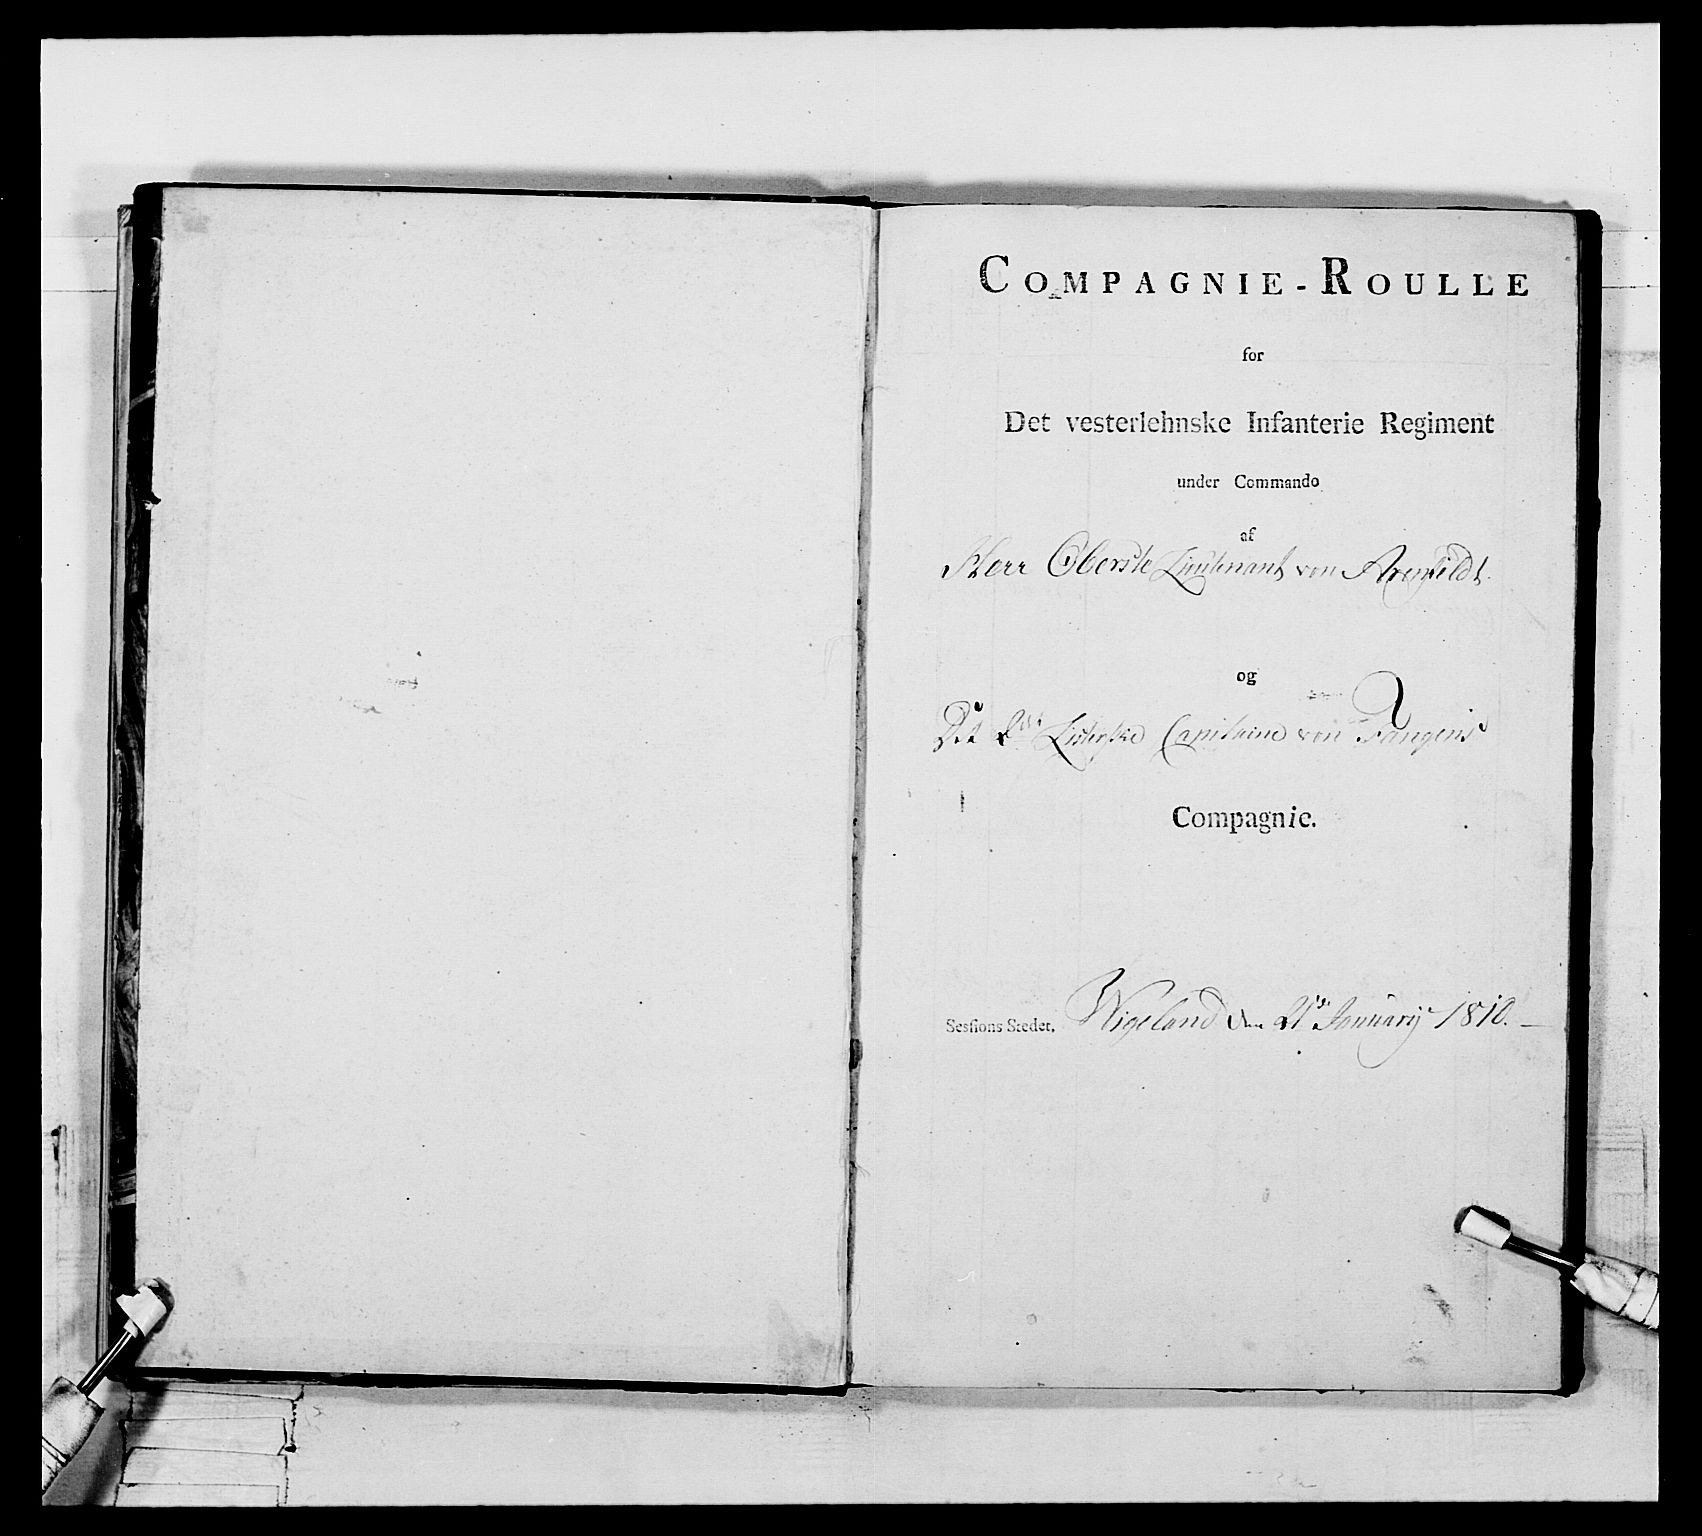 COMPAGNIE-ROULLE
for
Det vesterlehnske Infanterie Regiment
under Commando
af
Herr Oberste Lieutenant von Arenfeldt
og
Det 2det Listerske Capitaine von Fangens
Compagnie.
Sessions Stedet, Wigeland den 21de January 1810.